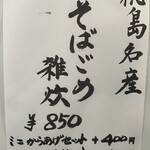 徳島名産
そばごめ
雑炊
¥850
ミニからあげセット+400円